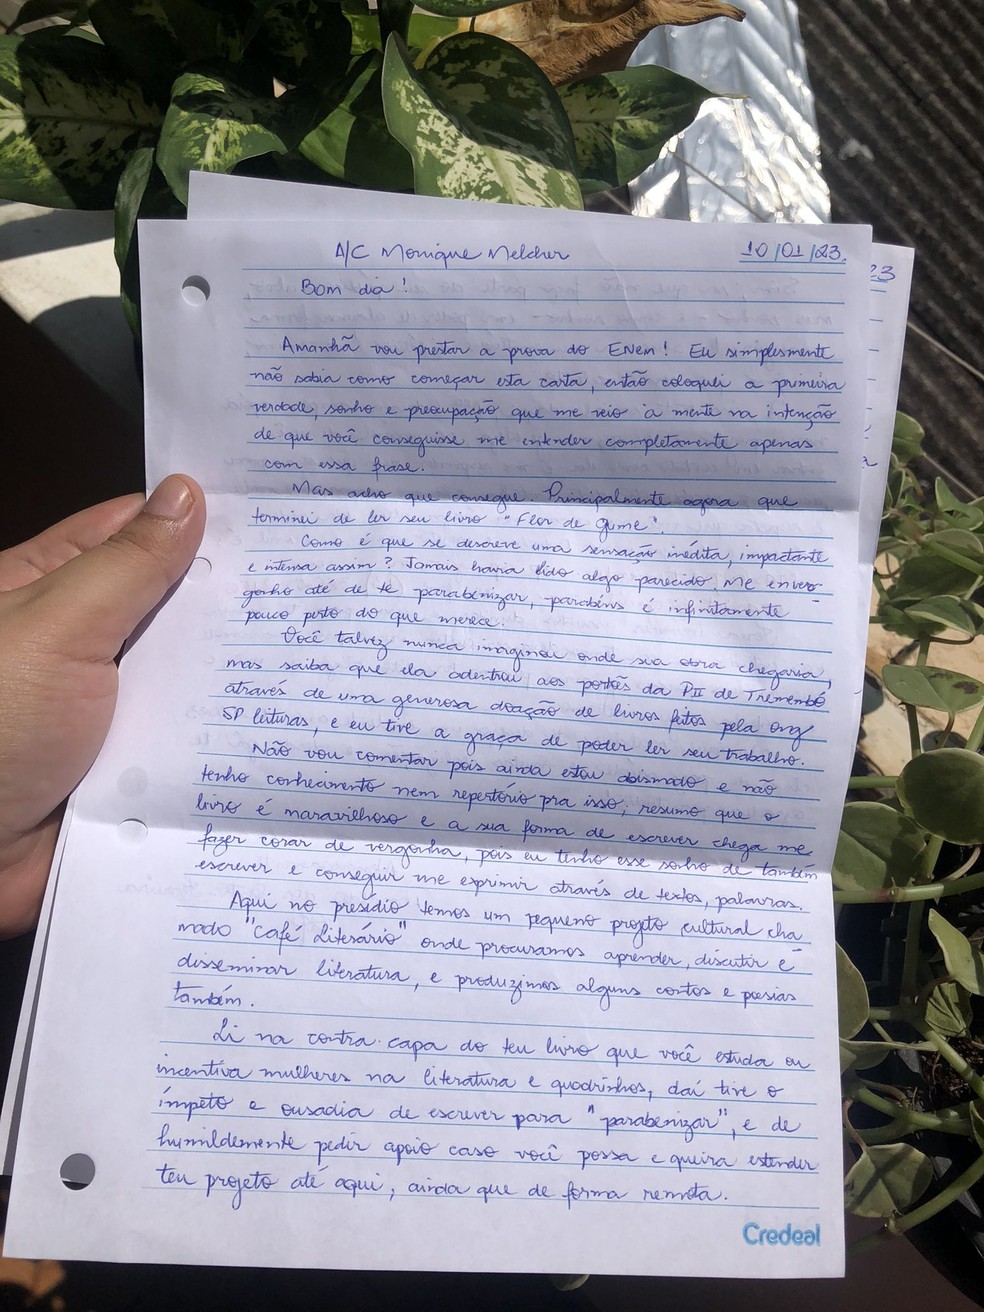 A/C Monique Melcher 10/01/23.
23
Bom dia!
Amanhã vou prestar a prova do ENem! Eu simplesmente
não sabia como começar esta carta, então coloquei a primeira
verdade, sonho e preocupação que me veio à mente na intenção
de que você conseguisse me entender completamente apenas
com essa frase.
Mas acho que consegue. Principalmente agora que
terminei de ler seu livro "Flor de Gume".
Como é que se descreve uma sensação inédita, impactante
e intensa assim? Jamais havia lido algo parecido. Me enver-
gonho até de te parabenizar, parabéns é infinitamente
pouco perto do que merece.
Você talvez nunca imaginou onde sua obra chegaria,
mas saiba que ela adentrou aos portões da PII de Tremembé
através de uma generosa doação de livros feitos pela ong
SP leituras, e eu tive a graça de poder ler seu trabalho.
Não vou comentar pois ainda estou abismado e não
tenho conhecimento nem repertório pra isso; resumo que o
livro é maravilhoso e a sua forma de escrever chega me
fazer corar de vergonha, pois eu tenho esse sonho de também
escrever e conseguir me exprimir através de textos, palavras.
Aqui no presídio temos um pequeno projeto cultural cha
mado "Café Literário" onde procuramos aprender, discutir e
disseminar literatura, e produzimos alguns contos e poesias
também.
Li na contra-capa do teu livro que você estuda ou
incentiva mulheres na literatura e quadrinhos, daí tive o
ímpeto e ousadia de escrever para "parabenizar", e de
humildemente pedir apoio caso você possa e queira estender
teu projeto até aqui, ainda que de forma remota.
Credeal